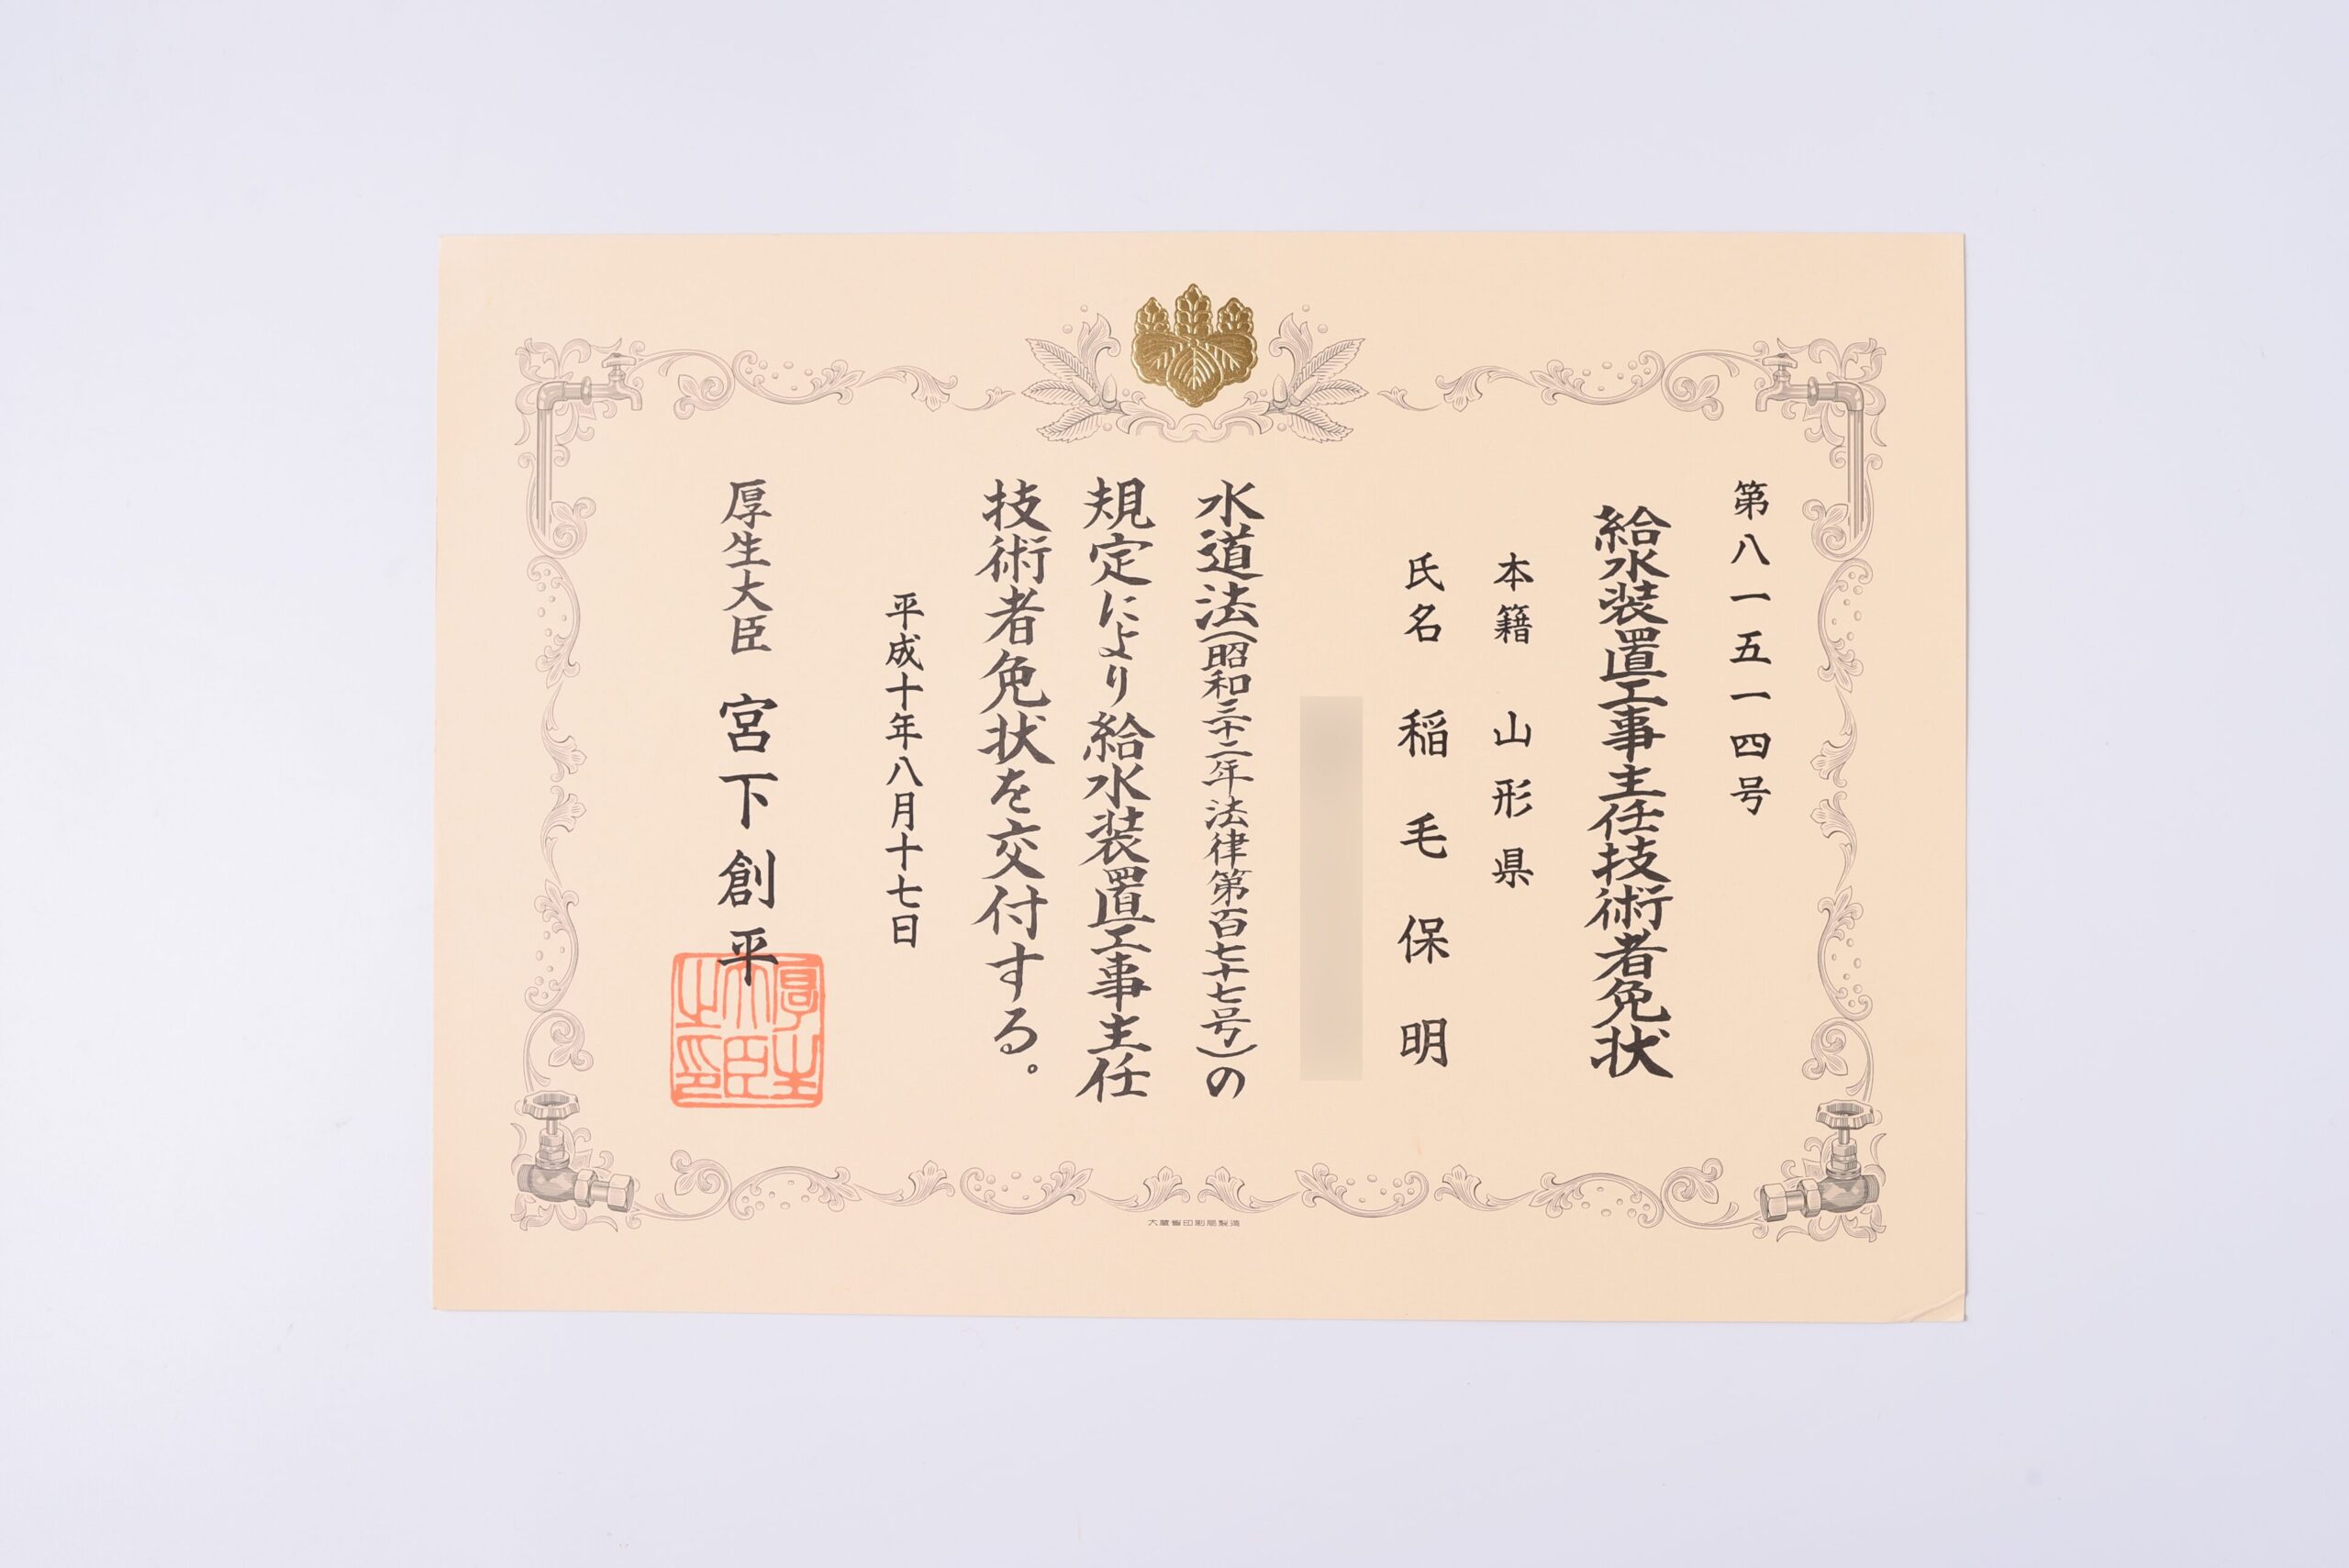 第八一五一一四号
給水装置工事主任技術者免状
本籍 山形県
氏名 稲毛保明
水道法(昭和三十二年法律第百七十七号)の
規定により給水装置工事主任
技術者免状を交付する。
平成十年八月十七日
厚生大臣 宮下創平
厚生大臣之印
大蔵省印刷局製造